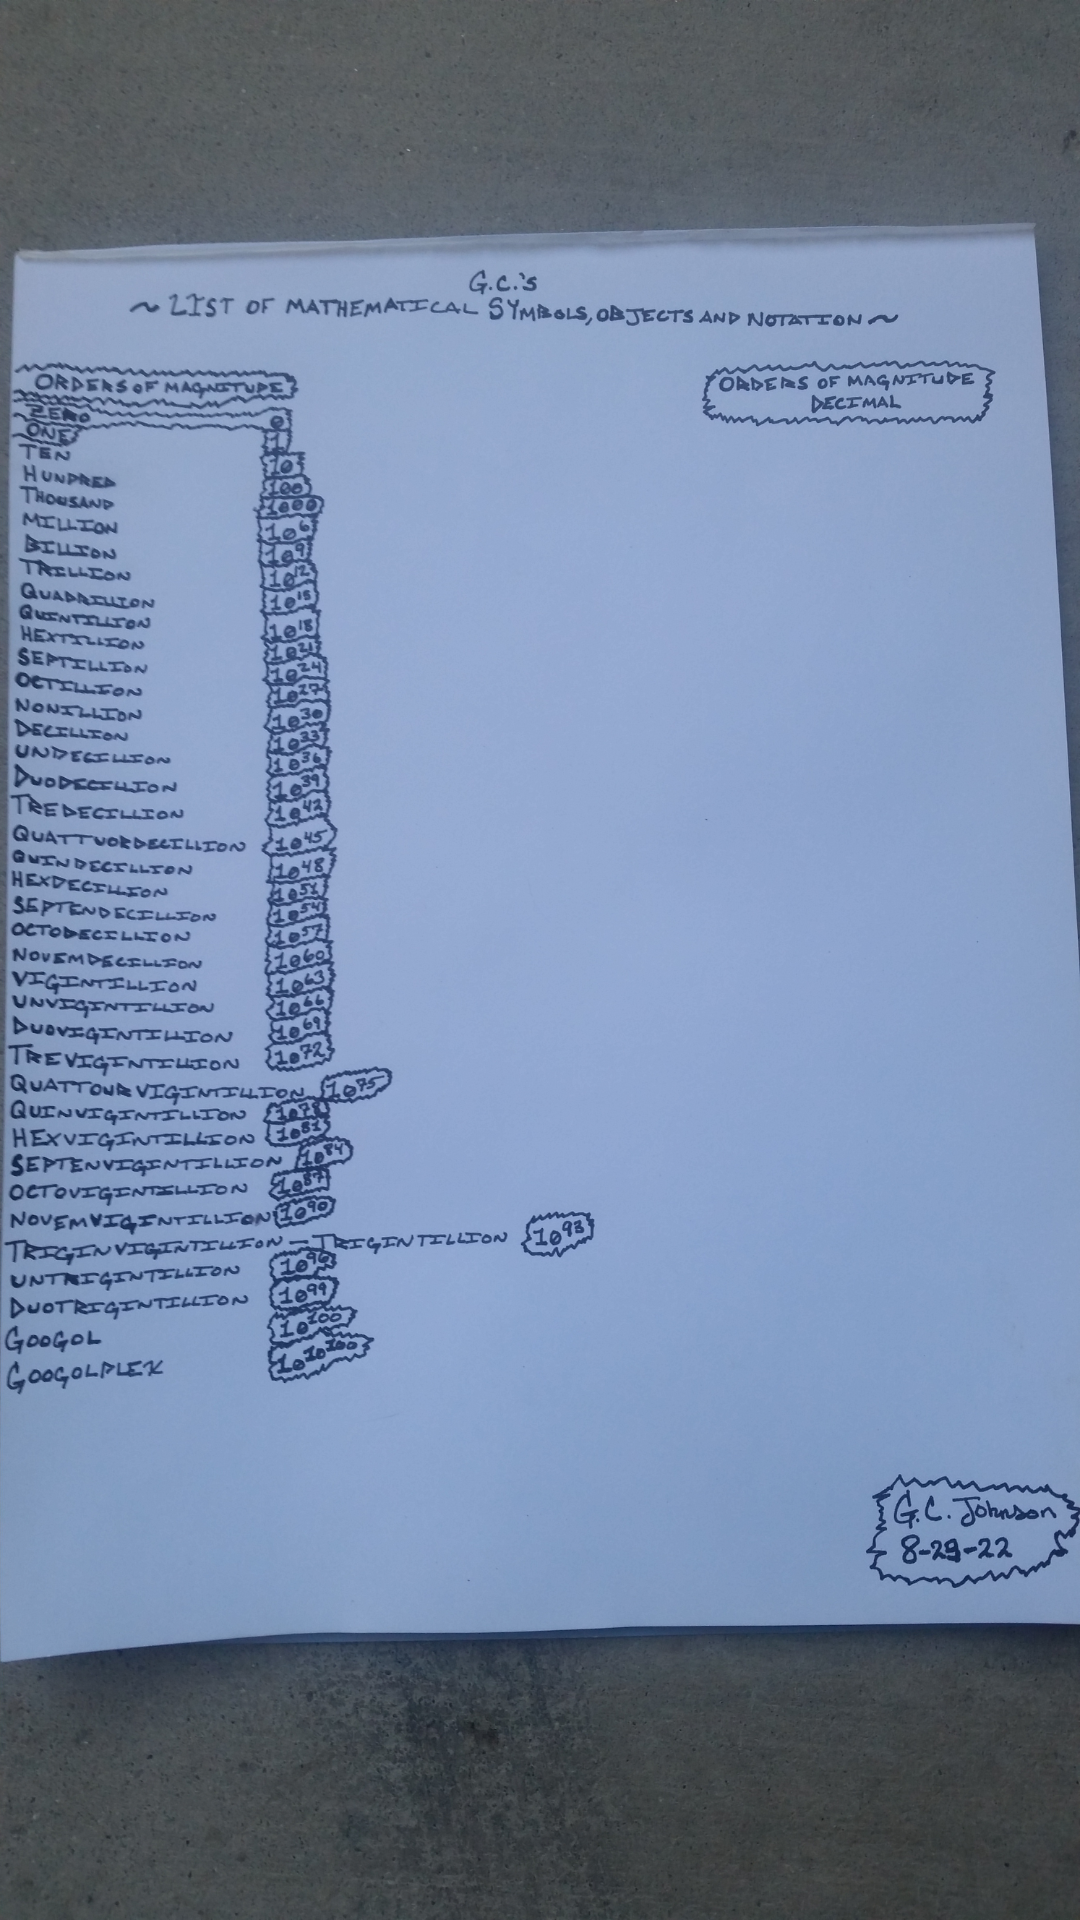 G.C.'s
~ LIST OF MATHEMATICAL SYMBOLS, OBJECTS AND NOTATION ~
ORDERS OF MAGNITUDE
ORDERS OF MAGNITUDE
DECIMAL
ZERO 0
ONE 1
TEN 10
HUNDRED 100
THOUSAND 1000
MILLION 10⁶
BILLION 10⁹
TRILLION 10¹²
QUADRILLION 10¹⁵
QUINTILLION 10¹⁸
HEXTILLION 10²¹
SEPTILLION 10²⁴
OCTILLION 10²⁷
NONILLION 10³⁰
DECILLION 10³³
UNDECILLION 10³⁶
DUODECILLION 10³⁹
TREDECILLION 10⁴²
QUATTUORDECILLION 10⁴⁵
QUINDECILLION 10⁴⁸
HEXDECILLION 10⁵¹
SEPTENDECILLION 10⁵⁴
OCTODECILLION 10⁵⁷
NOVEMDECILLION 10⁶⁰
VIGINTILLION 10⁶³
UNVIGINTILLION 10⁶⁶
DUOVIGINTILLION 10⁶⁹
TREVIGINTILLION 10⁷²
QUATTOURVIGINTILLION 10⁷⁵
QUINVIGINTILLION 10⁷⁸
HEXVIGINTILLION 10⁸¹
SEPTENVIGINTILLION 10⁸⁴
OCTOVIGINTILLION 10⁸⁷
NOVEMVIGINTILLION 10⁹⁰
TRIGINVIGINTILLION - TRIGINTILLION 10⁹³
UNTRIGINTILLION 10⁹⁶
DUOTRIGINTILLION 10⁹⁹
GOOGOL 10¹⁰⁰
GOOGOLPLEX 10^10^100
G.C. Johnson
8-29-22